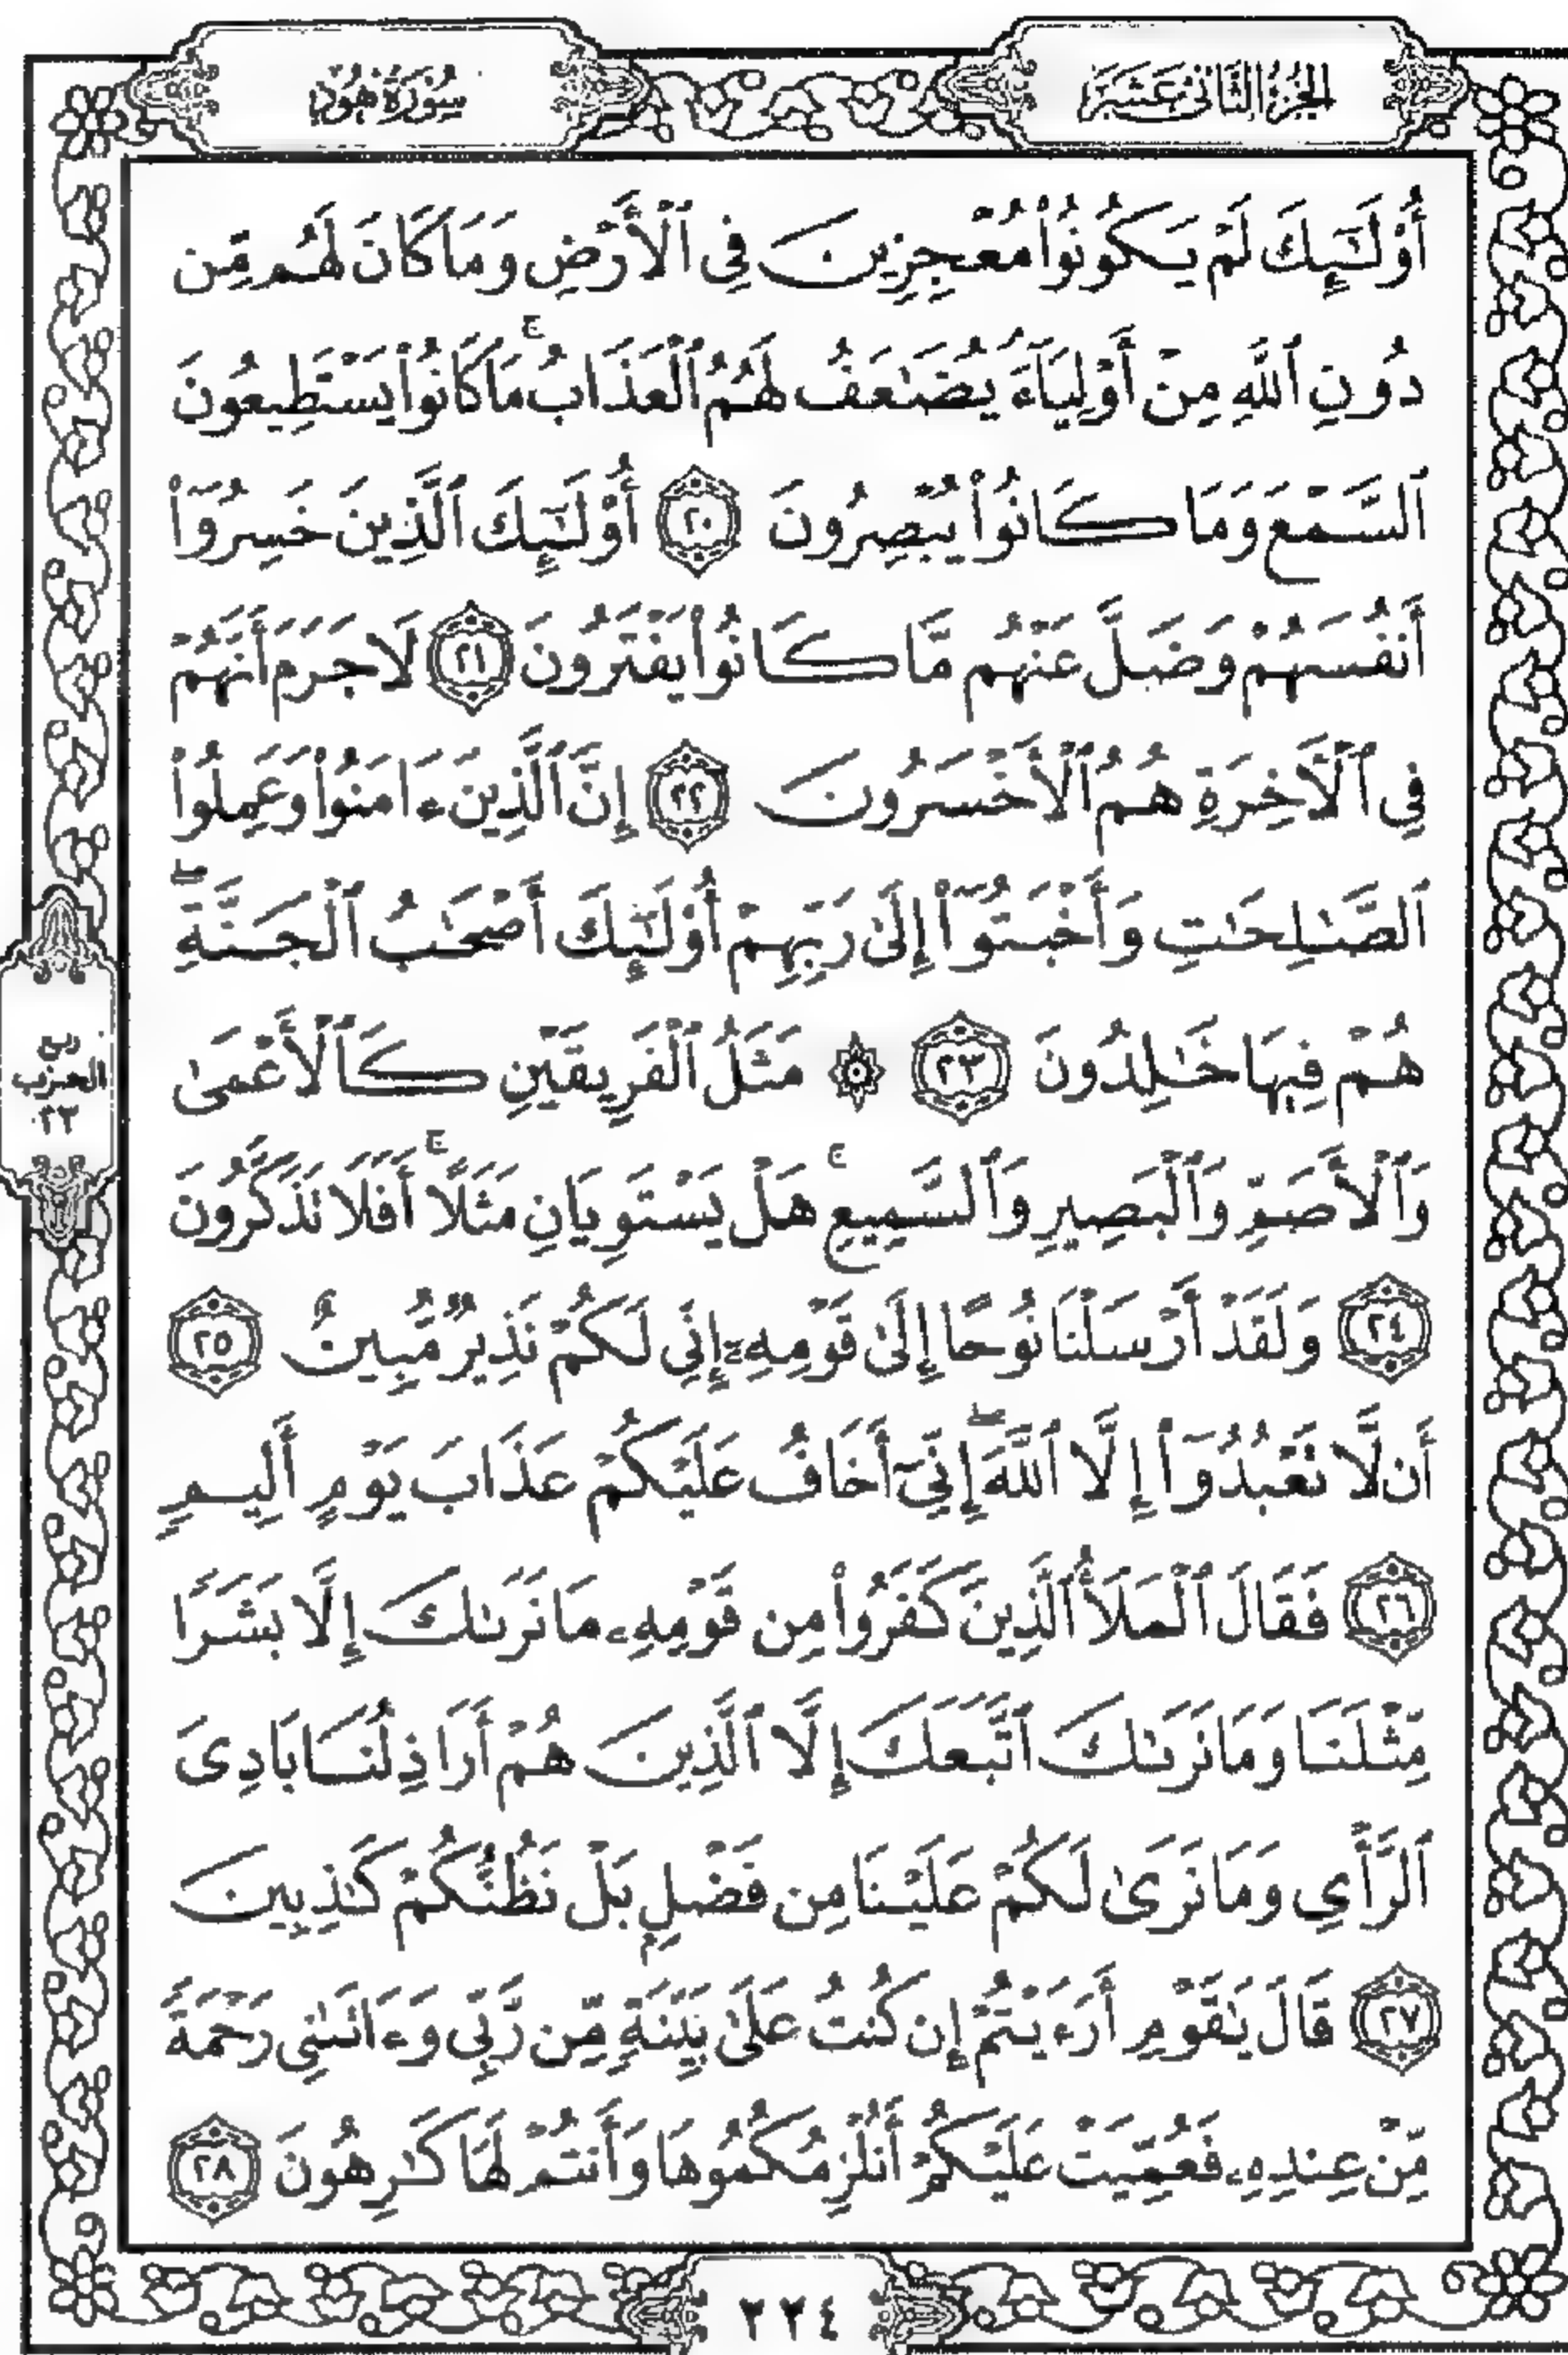 الجزء الثاني عشر
سورة هود
أُوْلَٰٓئِكَ لَمْ يَكُونُوا۟ مُعْجِزِينَ فِى ٱلْأَرْضِ وَمَا كَانَ لَهُم مِّن
دُونِ ٱللَّهِ مِنْ أَوْلِيَآءَ يُضَٰعَفُ لَهُمُ ٱلْعَذَابُ ۚ مَا كَانُوا۟ يَسْتَطِيعُونَ
ٱلسَّمْعَ وَمَا كَانُوا۟ يُبْصِرُونَ ٢٠ أُوْلَٰٓئِكَ ٱلَّذِينَ خَسِرُوٓا۟
أَنفُسَهُمْ وَضَلَّ عَنْهُم مَّا كَانُوا۟ يَفْتَرُونَ ٢١ لَا جَرَمَ أَنَّهُمْ
فِى ٱلْأَخِرَةِ هُمُ ٱلْأَخْسَرُونَ ٢٢ إِنَّ ٱلَّذِينَ ءَامَنُوا۟ وَعَمِلُوا۟
ٱلصَّٰلِحَٰتِ وَأَخْبَتُوٓا۟ إِلَىٰ رَبِّهِمْ أُوْلَٰٓئِكَ أَصْحَٰبُ ٱلْجَنَّةِ ۖ
هُمْ فِيهَا خَٰلِدُونَ ٢٣ ۞ مَثَلُ ٱلْفَرِيقَيْنِ كَٱلْأَعْمَىٰ
وَٱلْأَصَمِّ وَٱلْبَصِيرِ وَٱلسَّمِيعِ ۚ هَلْ يَسْتَوِيَانِ مَثَلًا ۚ أَفَلَا تَذَكَّرُونَ
٢٤ وَلَقَدْ أَرْسَلْنَا نُوحًا إِلَىٰ قَوْمِهِۦٓ إِنِّى لَكُمْ نَذِيرٌ مُّبِينٌ ٢٥
أَن لَّا تَعْبُدُوٓا۟ إِلَّا ٱللَّهَ ۖ إِنِّىٓ أَخَافُ عَلَيْكُمْ عَذَابَ يَوْمٍ أَلِيمٍ
٢٦ فَقَالَ ٱلْمَلَأُ ٱلَّذِينَ كَفَرُوا۟ مِن قَوْمِهِۦ مَا نَرَىٰكَ إِلَّا بَشَرًا
مِّثْلَنَا وَمَا نَرَىٰكَ ٱتَّبَعَكَ إِلَّا ٱلَّذِينَ هُمْ أَرَاذِلُنَا بَادِىَ
ٱلرَّأْىِ وَمَا نَرَىٰ لَكُمْ عَلَيْنَا مِن فَضْلٍۭ بَلْ نَظُنُّكُمْ كَٰذِبِينَ
٢٧ قَالَ يَٰقَوْمِ أَرَءَيْتُمْ إِن كُنتُ عَلَىٰ بَيِّنَةٍ مِّن رَّبِّى وَءَاتَىٰنِى رَحْمَةً
مِّنْ عِندِهِۦ فَعُمِّيَتْ عَلَيْكُمْ أَنُلْزِمُكُمُوهَا وَأَنتُمْ لَهَا كَٰرِهُونَ ٢٨
ربع
الحزب
٢٣
٢٢٤